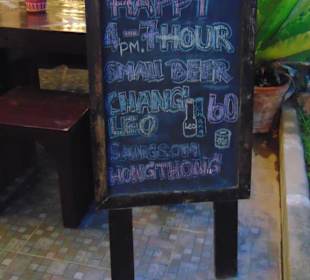 HAPPY
4 - 7 HOUR
PM.
SMALL BEER
CHANG 60
LEO
LEO
SANGSOM
HONGTHONG